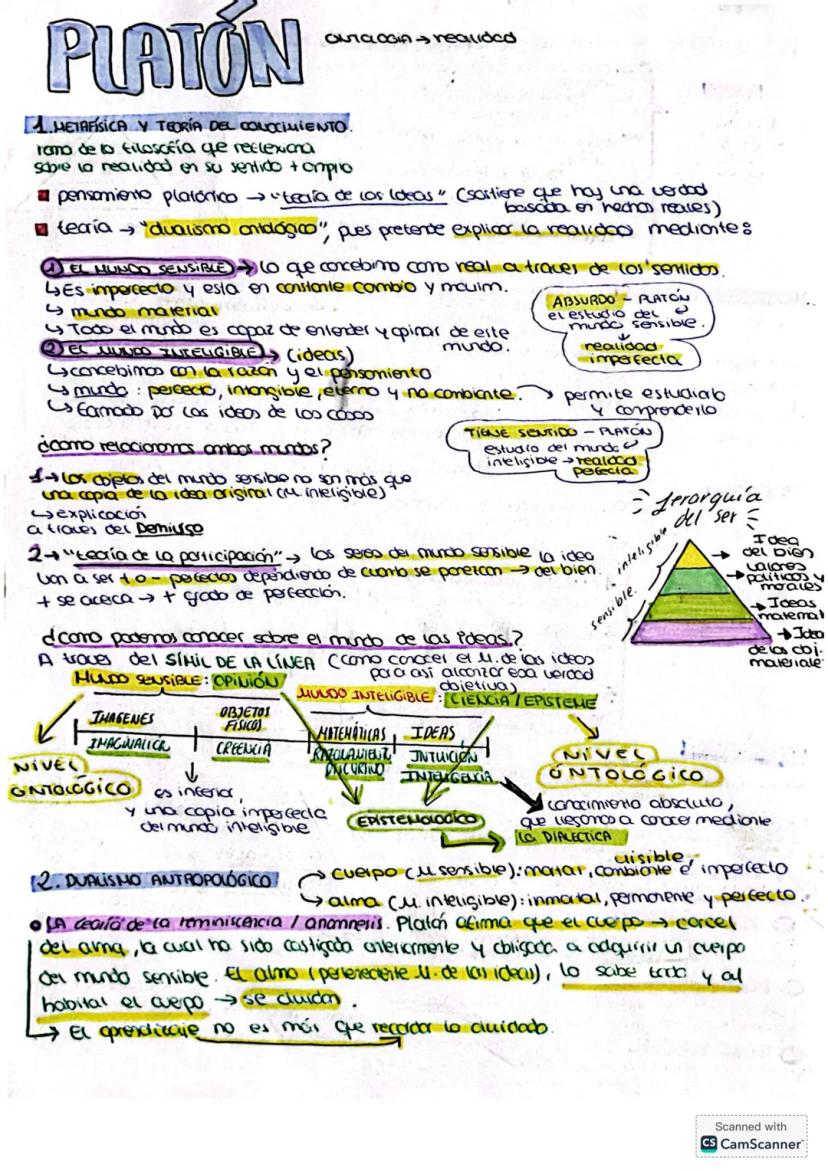 PLATÓN
ONTOLOGÍA → realidad
1. METAFÍSICA Y TEORÍA DEL CONOCIMIENTO.
rama de la filosofía que reflexiona
sobre la realidad en su sentido + amplio
pensamiento platónico → "teoría de las Ideas" (sostiene que hay una verdad
basada en hechos reales)
teoría → "dualismo ontológico", pues pretende explicar la realidad mediante:
1 EL MUNDO SENSIBLE → lo que concebimos como real a través de los sentidos.
↳ Es imperfecto y está en constante cambio y movim.
↳ mundo material
↳ Todo el mundo es capaz de entender y opinar de este
mundo.
ABSURDO - PLATÓN
el estudio del
mundo sensible.
↓
realidad
imperfecta
2 EL MUNDO INTELIGIBLE → (ideas)
↳ concebimos con la razón y el pensamiento
↳ mundo: perfecto, intangible, eterno y no cambiante. → permite estudiarlo
y comprenderlo
↳ Formado por las ideas de las cosas
TIENE SENTIDO - PLATÓN
estudio del mundo
inteligible → realidad
perfecta
¿como relacionamos ambos mundos?
1→ Los objetos del mundo sensible no son más que
una copia de la idea original (M. inteligible)
↳ explicación
a través del Demiurgo
2→ "teoría de la participación" → los seres del mundo sensible la idea
van a ser + o - perfectos dependiendo de cuanto se parezcan → del bien.
+ se acerca → + grado de perfección.
Jerarquía
del ser
inteligible
sensible.
→ Idea
del bien
valores
→ políticos y
morales
→ Ideas
matemát
→ Idea
de las obj.
materiale
¿como podemos conocer sobre el mundo de las ideas?
A través del SÍMIL DE LA LÍNEA (como conocer el M. de las ideas
para así alcanzar esa verdad
objetiva)
MUNDO SENSIBLE: OPINIÓN
MUNDO INTELIGIBLE: CIENCIA / EPISTEME
IMAGENES
OBJETOS
FÍSICOS
MATEMÁTICAS
IDEAS
IMAGINACIÓN
CREENCIA
RAZONAMIENT.
DISCURSIVO
INTUICIÓN
INTELIGENCIA
NIVEL
ONTOLÓGICO
NIVEL
ONTOLÓGICO
↓
es inferior,
y una copia imperfecta
del mundo inteligible
EPISTEMOLOGICO
conocimiento absoluto,
que llegamos a conocer mediante
LA DIALECTICA
2. DUALISMO ANTROPOLÓGICO
visible,
→ cuerpo (M sensible): mortal, cambiante e imperfecto
→ alma (M. inteligible): inmortal, permanente y perfecto.
LA teoría de la reminiscencia / anamnesis. Platón afirma que el cuerpo → carcel
del alma, la cual ha sido castigada anteriormente y obligada a adquirir un cuerpo
del mundo sensible. El alma (perteneciente M. de las ideas), lo sabe todo y al
habitar el cuerpo → se olvidan.
→ El aprendizaje no es más que recordar lo olvidado.
Scanned with
CS CamScanner